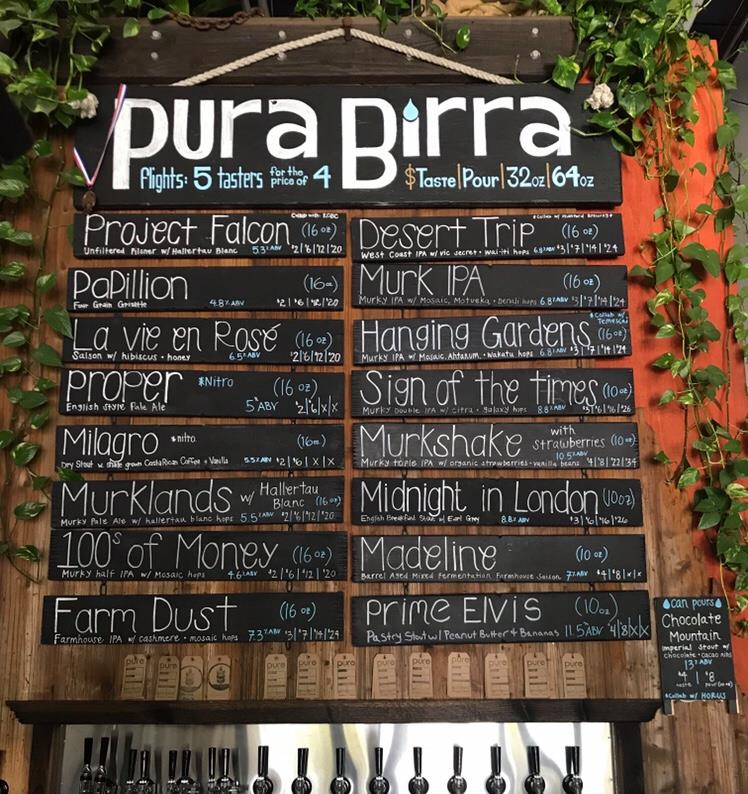 Pura Birra
flights: 5 tasters for the price of 4
$ Taste|Pour|32oz|64oz
Project Falcon (16 oz)
Unfiltered Pilsner w/ Hallertau Blanc 5.3% ABV $2|$6|$12|$20
PaPillion (16oz)
Four Grain Grisette 4.8% ABV $2|$6|$12|$20
La vie en Rosé (16 oz)
Saison w/ hibiscus + honey 6.5% ABV $2|$6|$12|$20
Proper *Nitro (16 oz)
English Style Pale Ale 5% ABV $2|$6|x|x
Milagro *nitro (16oz)
Dry Stout w. shade grown Costa Rican Coffee + Vanilla 5.5% ABV $2|$6|x|x
Murklands w/ Hallertau Blanc (16 oz)
Murky Pale Ale w/ hallertau blanc hops 5.5% ABV $2|$6|$12|$20
100s of Money (16 oz)
Murky half IPA w/ Mosaic hops 4.6% ABV $2|$6|$12|$20
Farm Dust (16 oz)
Farmhouse IPA w/ cashmere + mosaic hops 7.3% ABV $3|$7|$14|$24
Desert Trip (16 oz)
West Coast IPA w/ vic secret + wai-iti hops 6.8% ABV $3|$7|$14|$24
Murk IPA (16 oz)
Murky IPA w/ Mosaic, Motueka + Denali hops 6.8% ABV $3|$7|$14|$24
*Collab w/ Temescal*
Hanging Gardens (16 oz)
Murky IPA w/ Mosaic, Ahtanum + Wakatu hops 6.8% ABV $3|$7|$14|$24
Sign of the times (10 oz)
Murky Double IPA w/ citra + Galaxy hops 8.8% ABV $3|$6|$16|$26
Murkshake with strawberries (10 oz)
Murky triple IPA w/ organic strawberries + vanilla beans 10.5% ABV $4|$8|$22|$34
Midnight in London (10 oz)
English Breakfast Stout w/ Earl Grey 8.8% ABV $3|$6|$16|$26
Madeline (10 oz)
Barrel Aged Mixed Fermentation Farmhouse Saison 7% ABV $4|$8|x|x
Prime Elvis (10 oz)
Pastry Stout w/ Peanut Butter & Bananas 11.5% ABV $4|$8|x|x
Can pours
Chocolate
Mountain
Imperial Stout w/
Chocolate + cacao nibs
13% ABV
$4 | $8
taste pour (10 oz)
*Collab w/ HORUS
pure
pure
pure
pure
pure
pure
pure
pure
pure
pure
pure